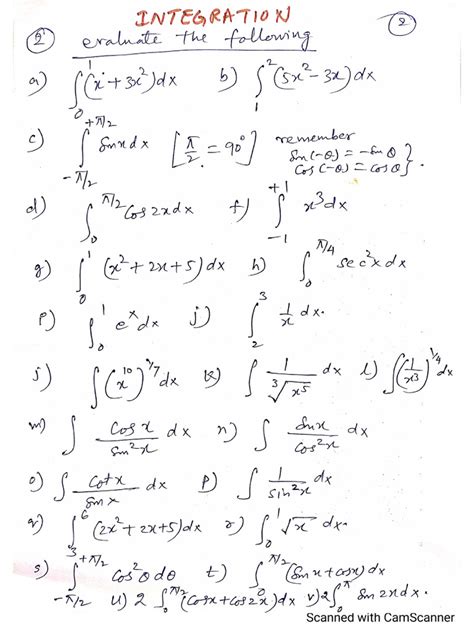 INTEGRATION
② evaluate the following ②
a) ∫₀¹ (x + 3x²) dx b) ∫₁² (5x² − 3x) dx
c) ∫_{-π/2}^{+π/2} sin x dx [π/2 = 90°] remember
sin(−θ) = −sin θ
cos(−θ) = cos θ }.
d) ∫₀^{π/2} cos 2x dx f) ∫_{-1}^{+1} x³ dx
g) ∫₀¹ (x² + 2x + 5) dx h) ∫₀^{π/4} sec² x dx
p) ∫₀¹ eˣ dx j) ∫₂³ 1/x dx.
j) ∫ (x¹⁰)^{1/7} dx k) ∫ 1/∛x⁵ dx l) ∫ (1/x³)^{1/4} dx
m) ∫ cos x / sin² x dx n) ∫ sin x / cos² x dx
o) ∫ cot x / sin x dx p) ∫ 1/sin² x dx
q) ∫₃⁶ (2x² + 2x + 5) dx r) ∫₀¹ √x dx.
s) ∫_{-π/2}^{+π/2} cos² θ dθ t) ∫₀^{π/2} (sin x + cos x) dx
u) 2 ∫₀^{π/2} (cos x + cos 2x) dx v) 2 ∫₀^{π} sin 2x dx.
Scanned with CamScanner